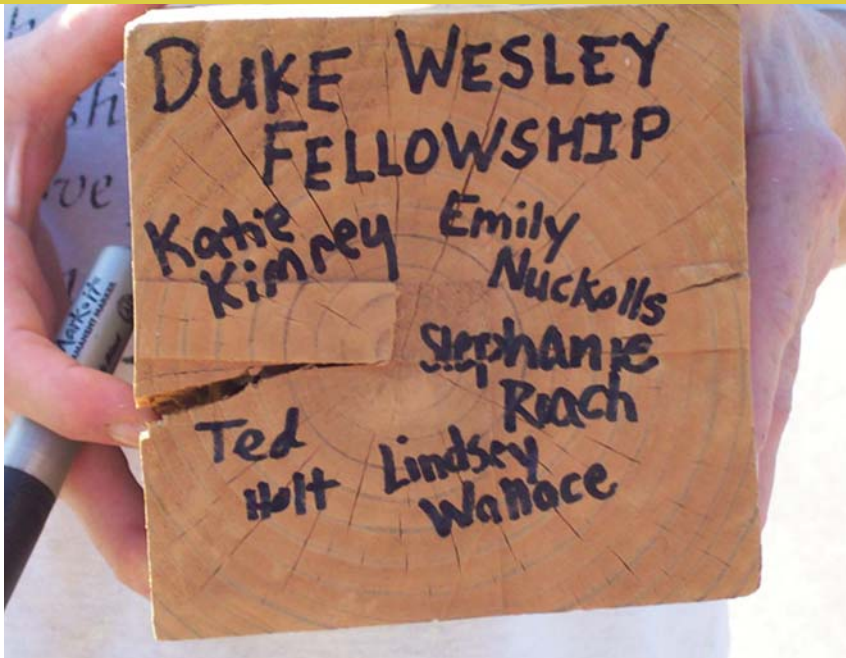 DUKE WESLEY
FELLOWSHIP
Katie
Kimrey
Emily
Nuckolls
Stephanie
Roach
Ted
Holt
Lindsey
Wallace
ve
Mark-it
PERMANENT MARKER